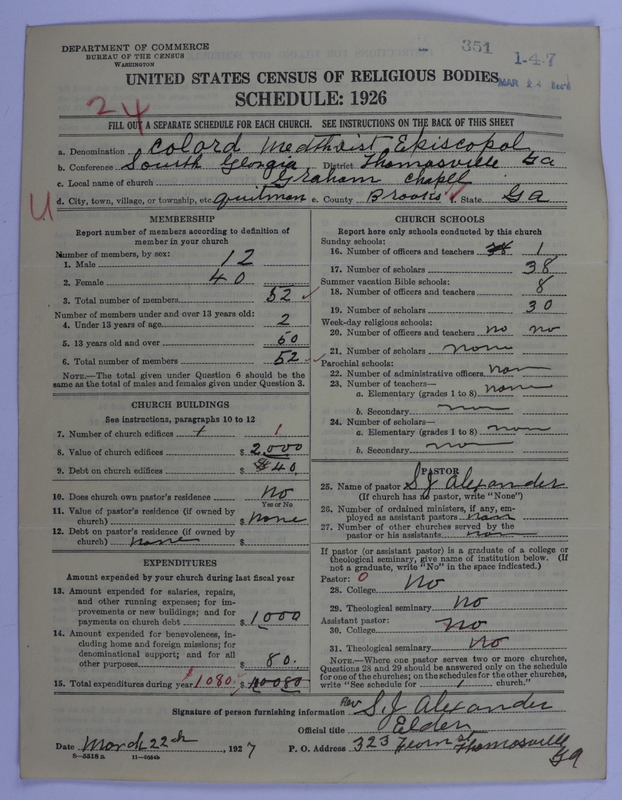 DEPARTMENT OF COMMERCE
BUREAU OF THE CENSUS
WASHINGTON
351
1-4-7
MAR 24 Rec'd
UNITED STATES CENSUS OF RELIGIOUS BODIES
SCHEDULE: 1926
24
FILL OUT A SEPARATE SCHEDULE FOR EACH CHURCH. SEE INSTRUCTIONS ON THE BACK OF THIS SHEET
a. Denomination Colard Medthoist Episcopol
b. Conference South Georgia District Thomasville Ga
c. Local name of church Graham Chapel
U
d. City, town, village, or township, etc. Quitman e. County Brooks f. State Ga
MEMBERSHIP
Report number of members according to definition of member in your church
Number of members, by sex:
1. Male 12
2. Female 40
3. Total number of members 52
Number of members under and over 13 years old:
4. Under 13 years of age 2
5. 13 years old and over 50
6. Total number of members 52
NOTE.—The total given under Question 6 should be the same as the total of males and females given under Question 3.
CHURCH BUILDINGS
See instructions, paragraphs 10 to 12
7. Number of church edifices 1
8. Value of church edifices $ 2,000
9. Debt on church edifices $ 40
10. Does church own pastor's residence No
Yes or No
11. Value of pastor's residence (if owned by church) $ none
12. Debt on pastor's residence (if owned by church) none $
EXPENDITURES
Amount expended by your church during last fiscal year
13. Amount expended for salaries, repairs, and other running expenses; for improvements or new buildings; and for payments on church debt $ 1000
14. Amount expended for benevolences, including home and foreign missions; for denominational support; and for all other purposes $ 80.
15. Total expenditures during year 1080 $ 10080
CHURCH SCHOOLS
Report here only schools conducted by this church
Sunday schools:
16. Number of officers and teachers 38 1
17. Number of scholars 38
Summer vacation Bible schools:
18. Number of officers and teachers 8
19. Number of scholars 30
Week-day religious schools:
20. Number of officers and teachers no no
21. Number of scholars none
Parochial schools:
22. Number of administrative officers non
23. Number of teachers—
a. Elementary (grades 1 to 8) none
b. Secondary non
24. Number of scholars—
a. Elementary (grades 1 to 8) non
b. Secondary non
PASTOR
25. Name of pastor S J Alexander
(If church has no pastor, write "None")
26. Number of ordained ministers, if any, employed as assistant pastors non
27. Number of other churches served by the pastor or his assistants non
If pastor (or assistant pastor) is a graduate of a college or theological seminary, give name of institution below. (If not a graduate, write "No" in the space indicated.)
Pastor: 0
28. College No
29. Theological seminary No
Assistant pastor:
30. College No
31. Theological seminary No
NOTE.—Where one pastor serves two or more churches, Questions 28 and 29 should be answered only on the schedule for one of the churches; on the schedules for the other churches, write "See schedule for 1 church."
Signature of person furnishing information Rev S. J Alexander
Official title Elder
Date March 22th, 1927 P. O. Address 323 st Thomasville Ga